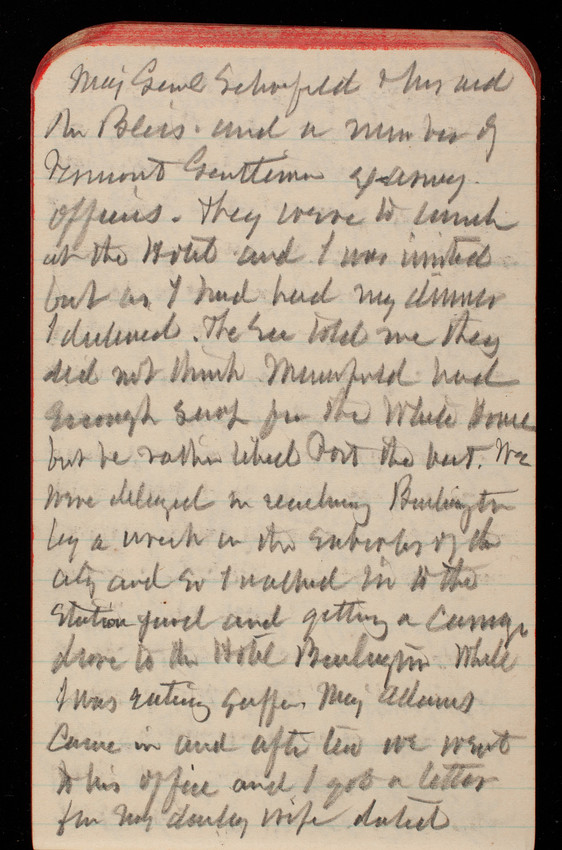 Maj Genl Schofield & his aid
Mr Bliss and a number of
Vermont Gentlemen ex army
officers. They were to lunch
at the Hotel and I was invited
but as I had had my dinner
I declined. The Gen told me they
did not think had
enough snap for the White House
but he rather liked Post the best. We
were delayed in reaching Burlington
by a wreck in the suburbs of the
city and so I walked in to the
Station yard and getting a carriage
drove to the Hotel Burlington While
I was eating supper Maj Adams
came in and after tea we went
to his office and I got a letter
from my darling wife dated